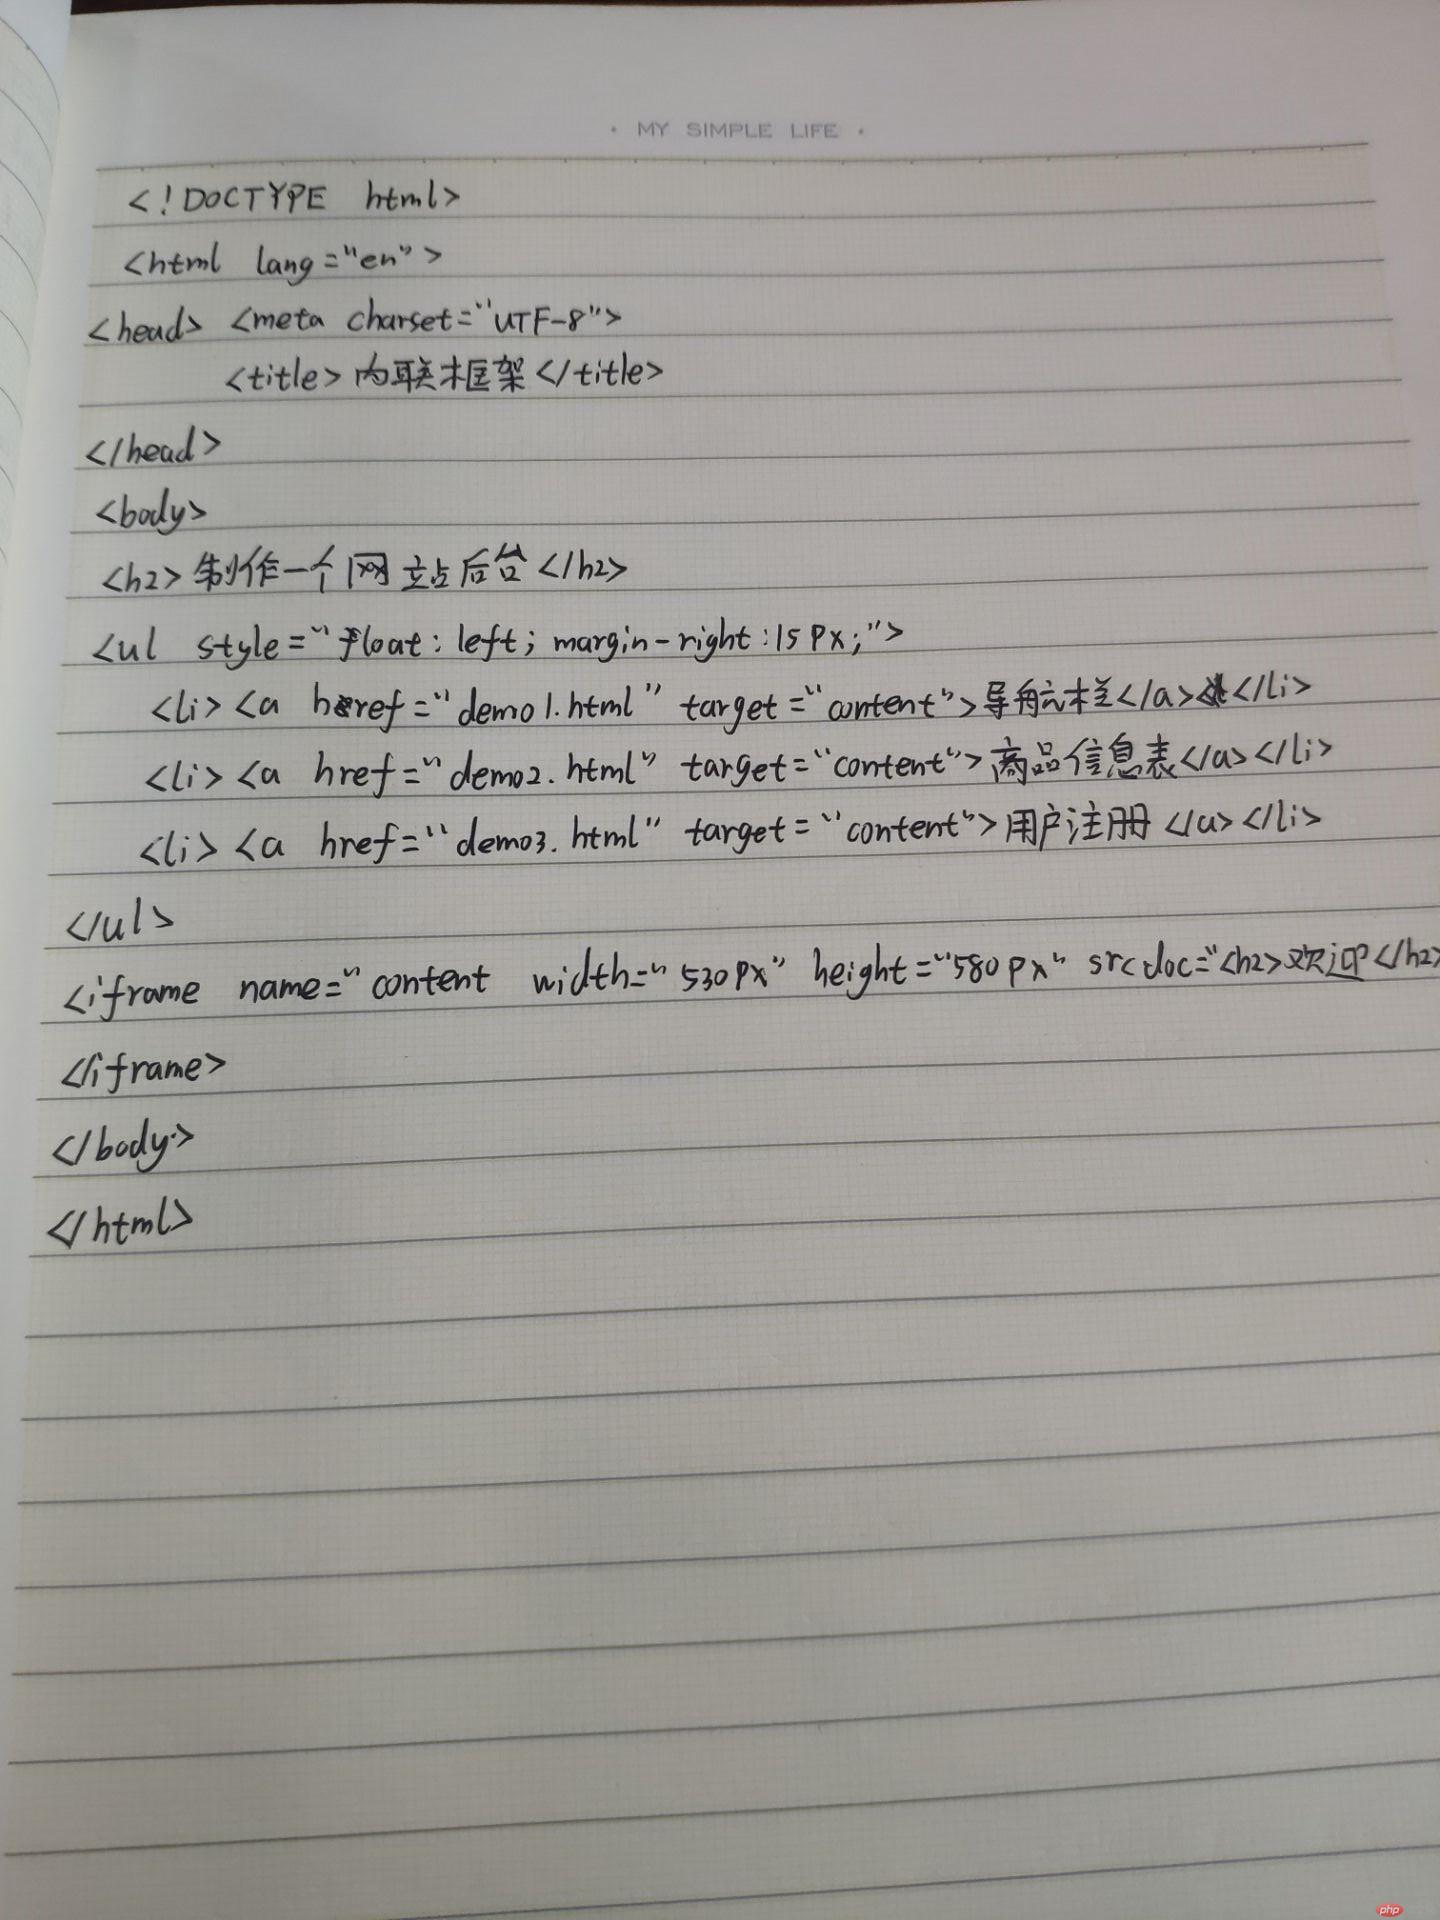 · MY SIMPLE LIFE ·
<!DOCTYPE html>
<html lang="en">
<head> <meta charset="UTF-8">
<title>内联框架</title>
</head>
<body>
<h2>制作一个网站后台</h2>
<ul style="float: left; margin-right:15px;">
<li><a href="demo1.html" target="content">导航栏</a></li>
<li><a href="demo2.html" target="content">商品信息表</a></li>
<li><a href="demo3.html" target="content">用户注册</a></li>
</ul>
<iframe name="content width="530px" height="580px" srcdoc="<h2>欢迎</h2>
</iframe>
</body>
</html>
php